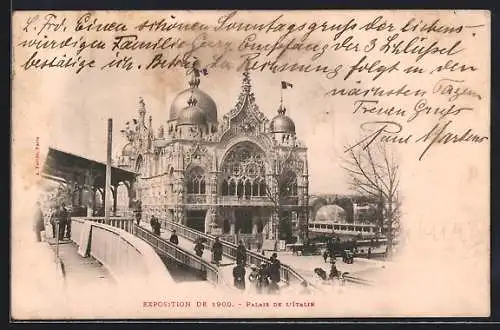 L. Frd. Einen schönen Sonntagsgruss der liebens-
würdigen Familie. Empfang der 3 Schlüssel
bestätige ich. Rechnung folgt in den
nächsten Tagen
Treuen Gruss
Paul Martens
EXPOSITION DE 1900. - PALAIS DE L'ITALIE